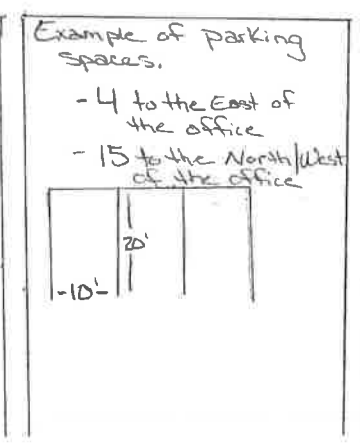 Example of parking
spaces.
- 4 to the East of
the office
- 15 to the North/West
of the office
20'
-10'-